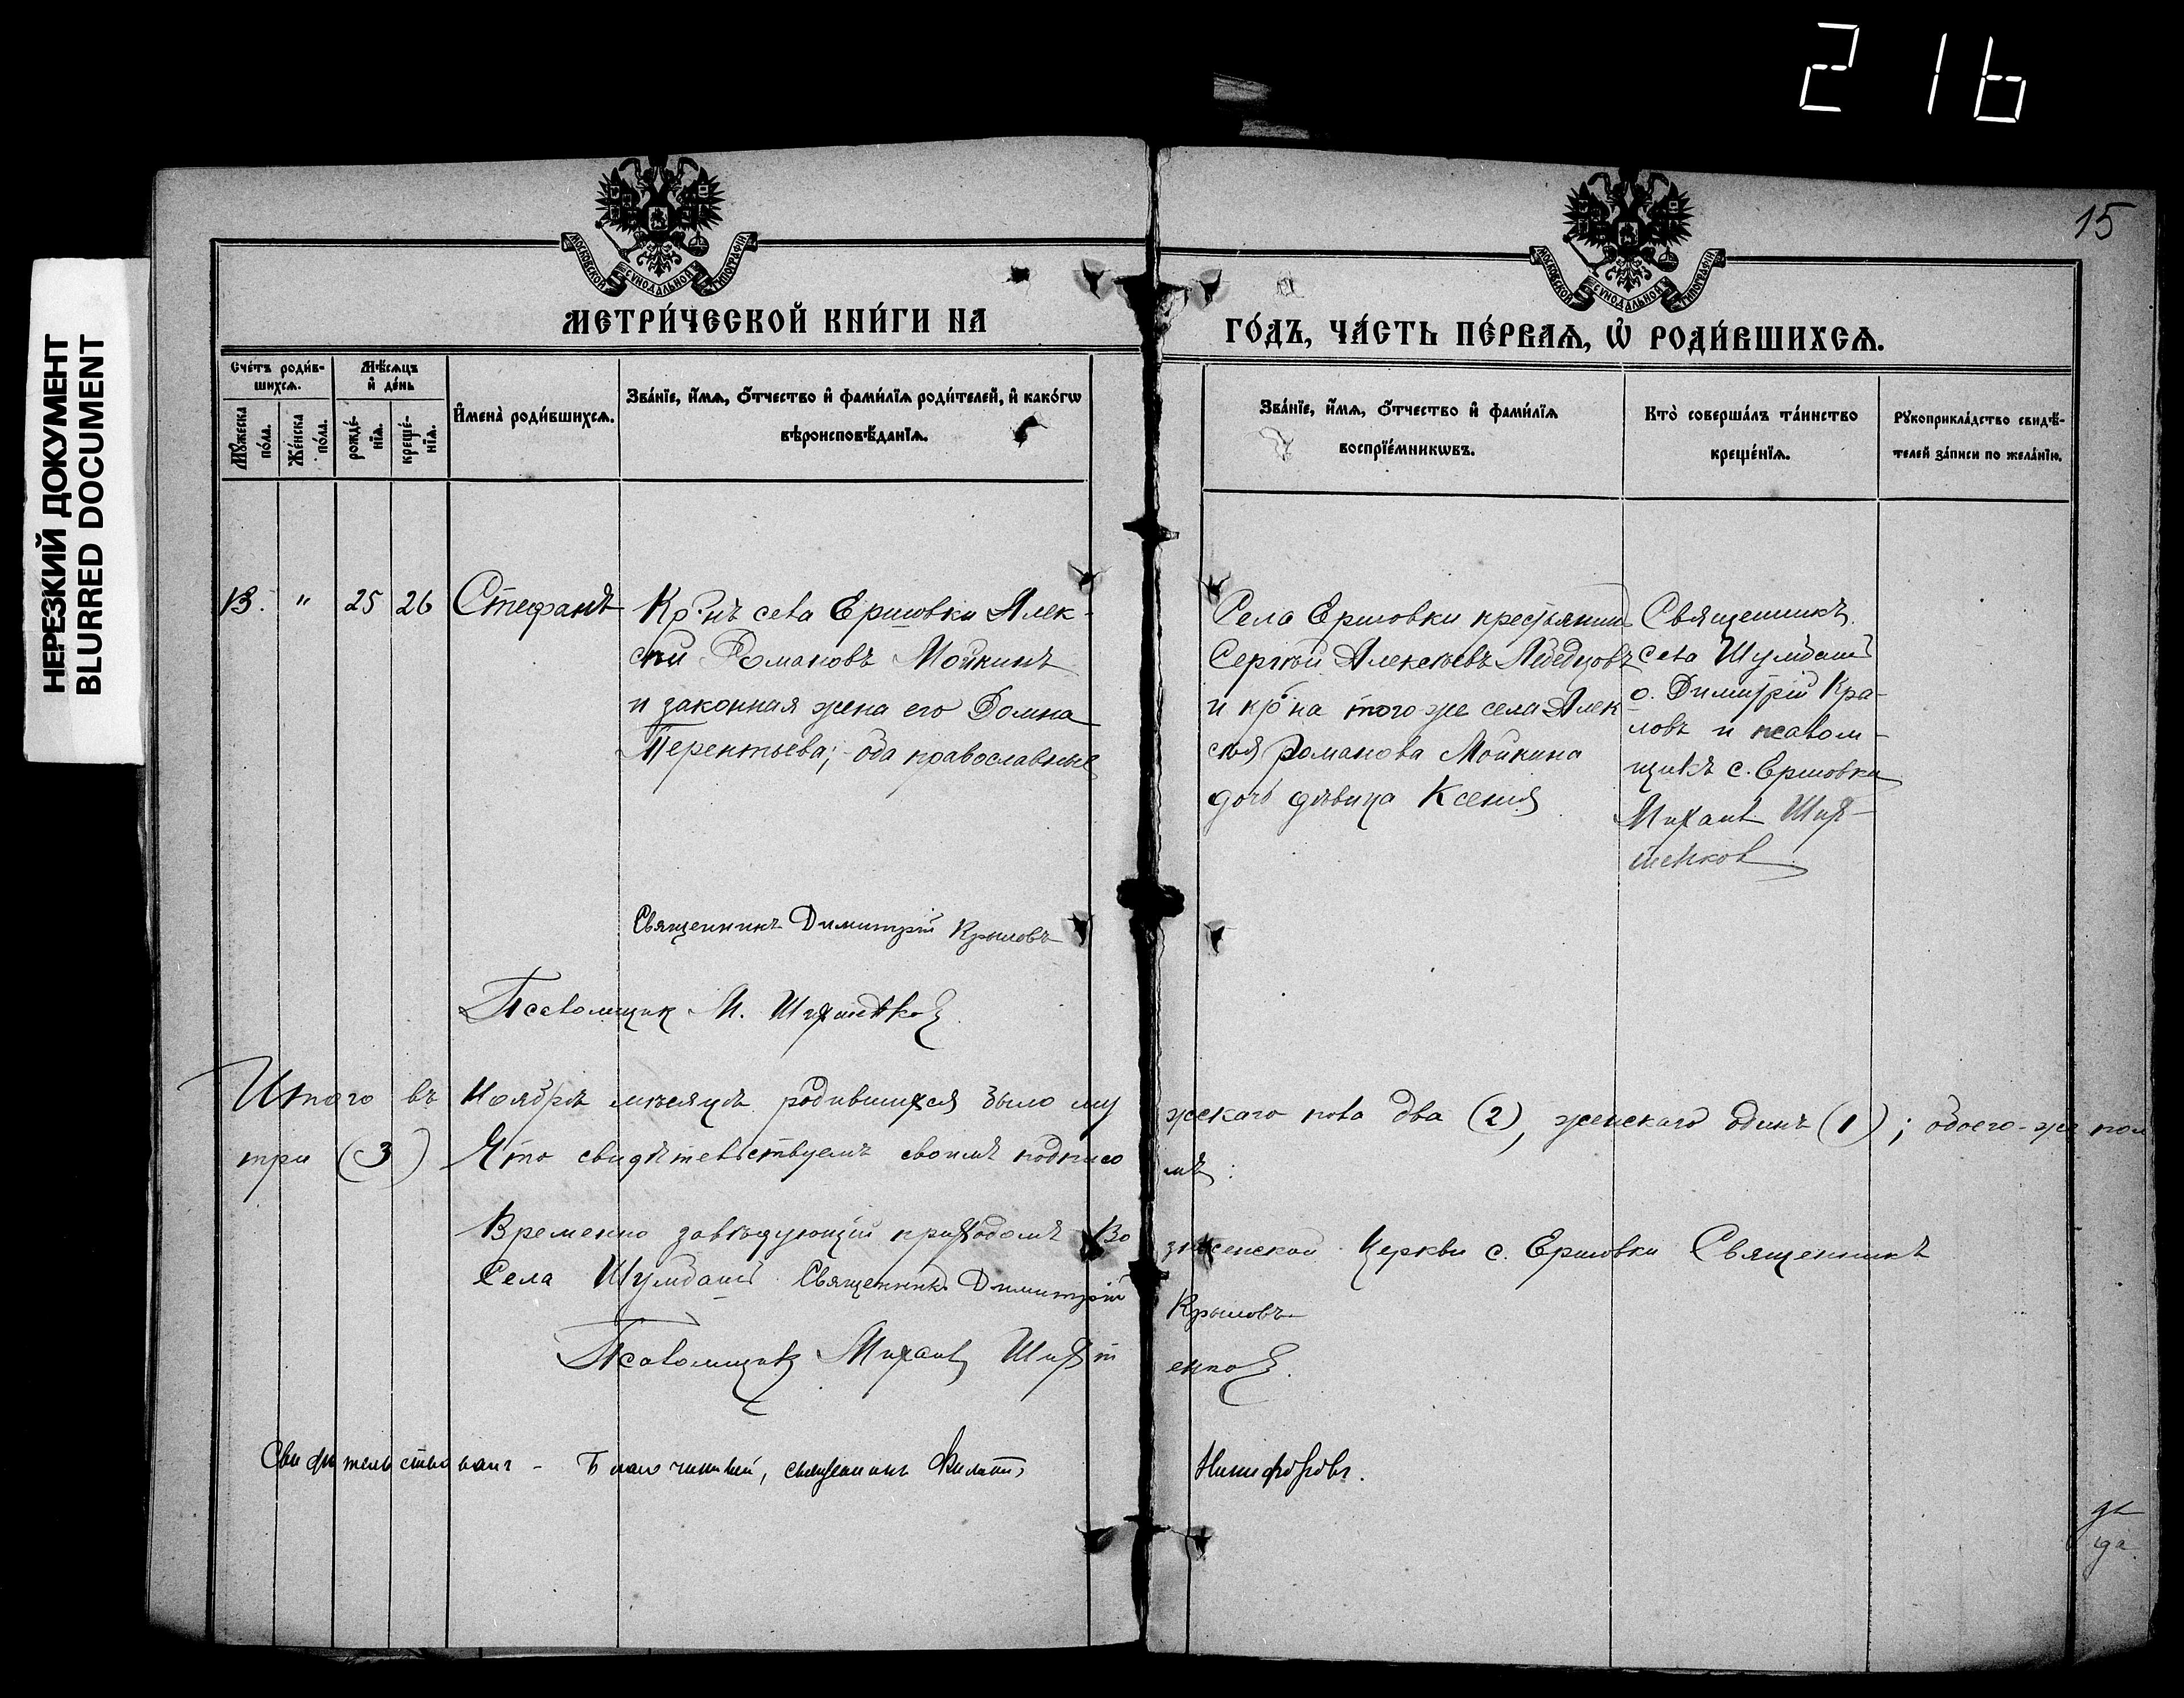 216
15
НЕРЕЗКИЙ ДОКУМЕНТ
BLURRED DOCUMENT
МОСКОВСКОЙ СУНОДАЛЬНОЙ ТИПОГРАФІИ
МОСКОВСКОЙ СУНОДАЛЬНОЙ ТИПОГРАФІИ
МЕТРИ́ЧЕСКОЙ КНИ́ГИ НА
ГО́ДЪ, ЧА́СТЬ ПЕ́РВАѦ, Ѡ҆ РОДИ́ВШИХСѦ.
Сче́тъ роди́в-
шихсѧ.
Мѣ́сѧцъ
и҆ де́нь
Мꙋ́жеска
по́ла.
Же́нска
по́ла.
рожде́-
нїѧ.
креще́-
нїѧ.
И҆мена̀ роди́вшихсѧ.
Зва́нїе, и҆́мѧ, ѻ҆́тчество и҆ фами́лїѧ роди́телей, и҆ како́гѡ
вѣроисповѣ́данїѧ.
Зва́нїе, и҆́мѧ, ѻ҆́тчество и҆ фами́лїѧ
воспрїе́мникѡвъ.
Кто̀ соверша́лъ та́инство
креще́нїѧ.
Рꙋкоприкла́дство свидѣ́-
телей за́писи по жела́нїю.
13. " 25 26 Стефанъ
Кр-нъ села Ершовки Алек-
сѣй Романовъ Мойкинъ
и законная жена его Домна
Терентьева; оба православные
Села Ершовки крестьянинъ
Сергѣй Алексѣевъ
и кр-на того же села Алек
сѣя Романова Мойкина
дочь дѣвица Ксенія
Священникъ
села
о. Димитрій Кры-
ловъ и псалом-
щикъ с. Ершовки
Михаил
Священникъ Димитрій Крыловъ
Псаломщик М.
Итого въ Ноябрѣ мѣсяцѣ родившихся было му жескаго пола два (2), женскаго одинъ (1); обоего-же пола
три (3) Что свидѣтельствуемъ своимъ подписо мъ:
Временно завѣдующій приходомъ Во знесенской Церкви с. Ершовки Священникъ
Села Священникъ Димитрій Крыловъ
Псаломщик Михаил
Свидѣтельствовалъ - Благочинный, священникъ Никифоровъ.